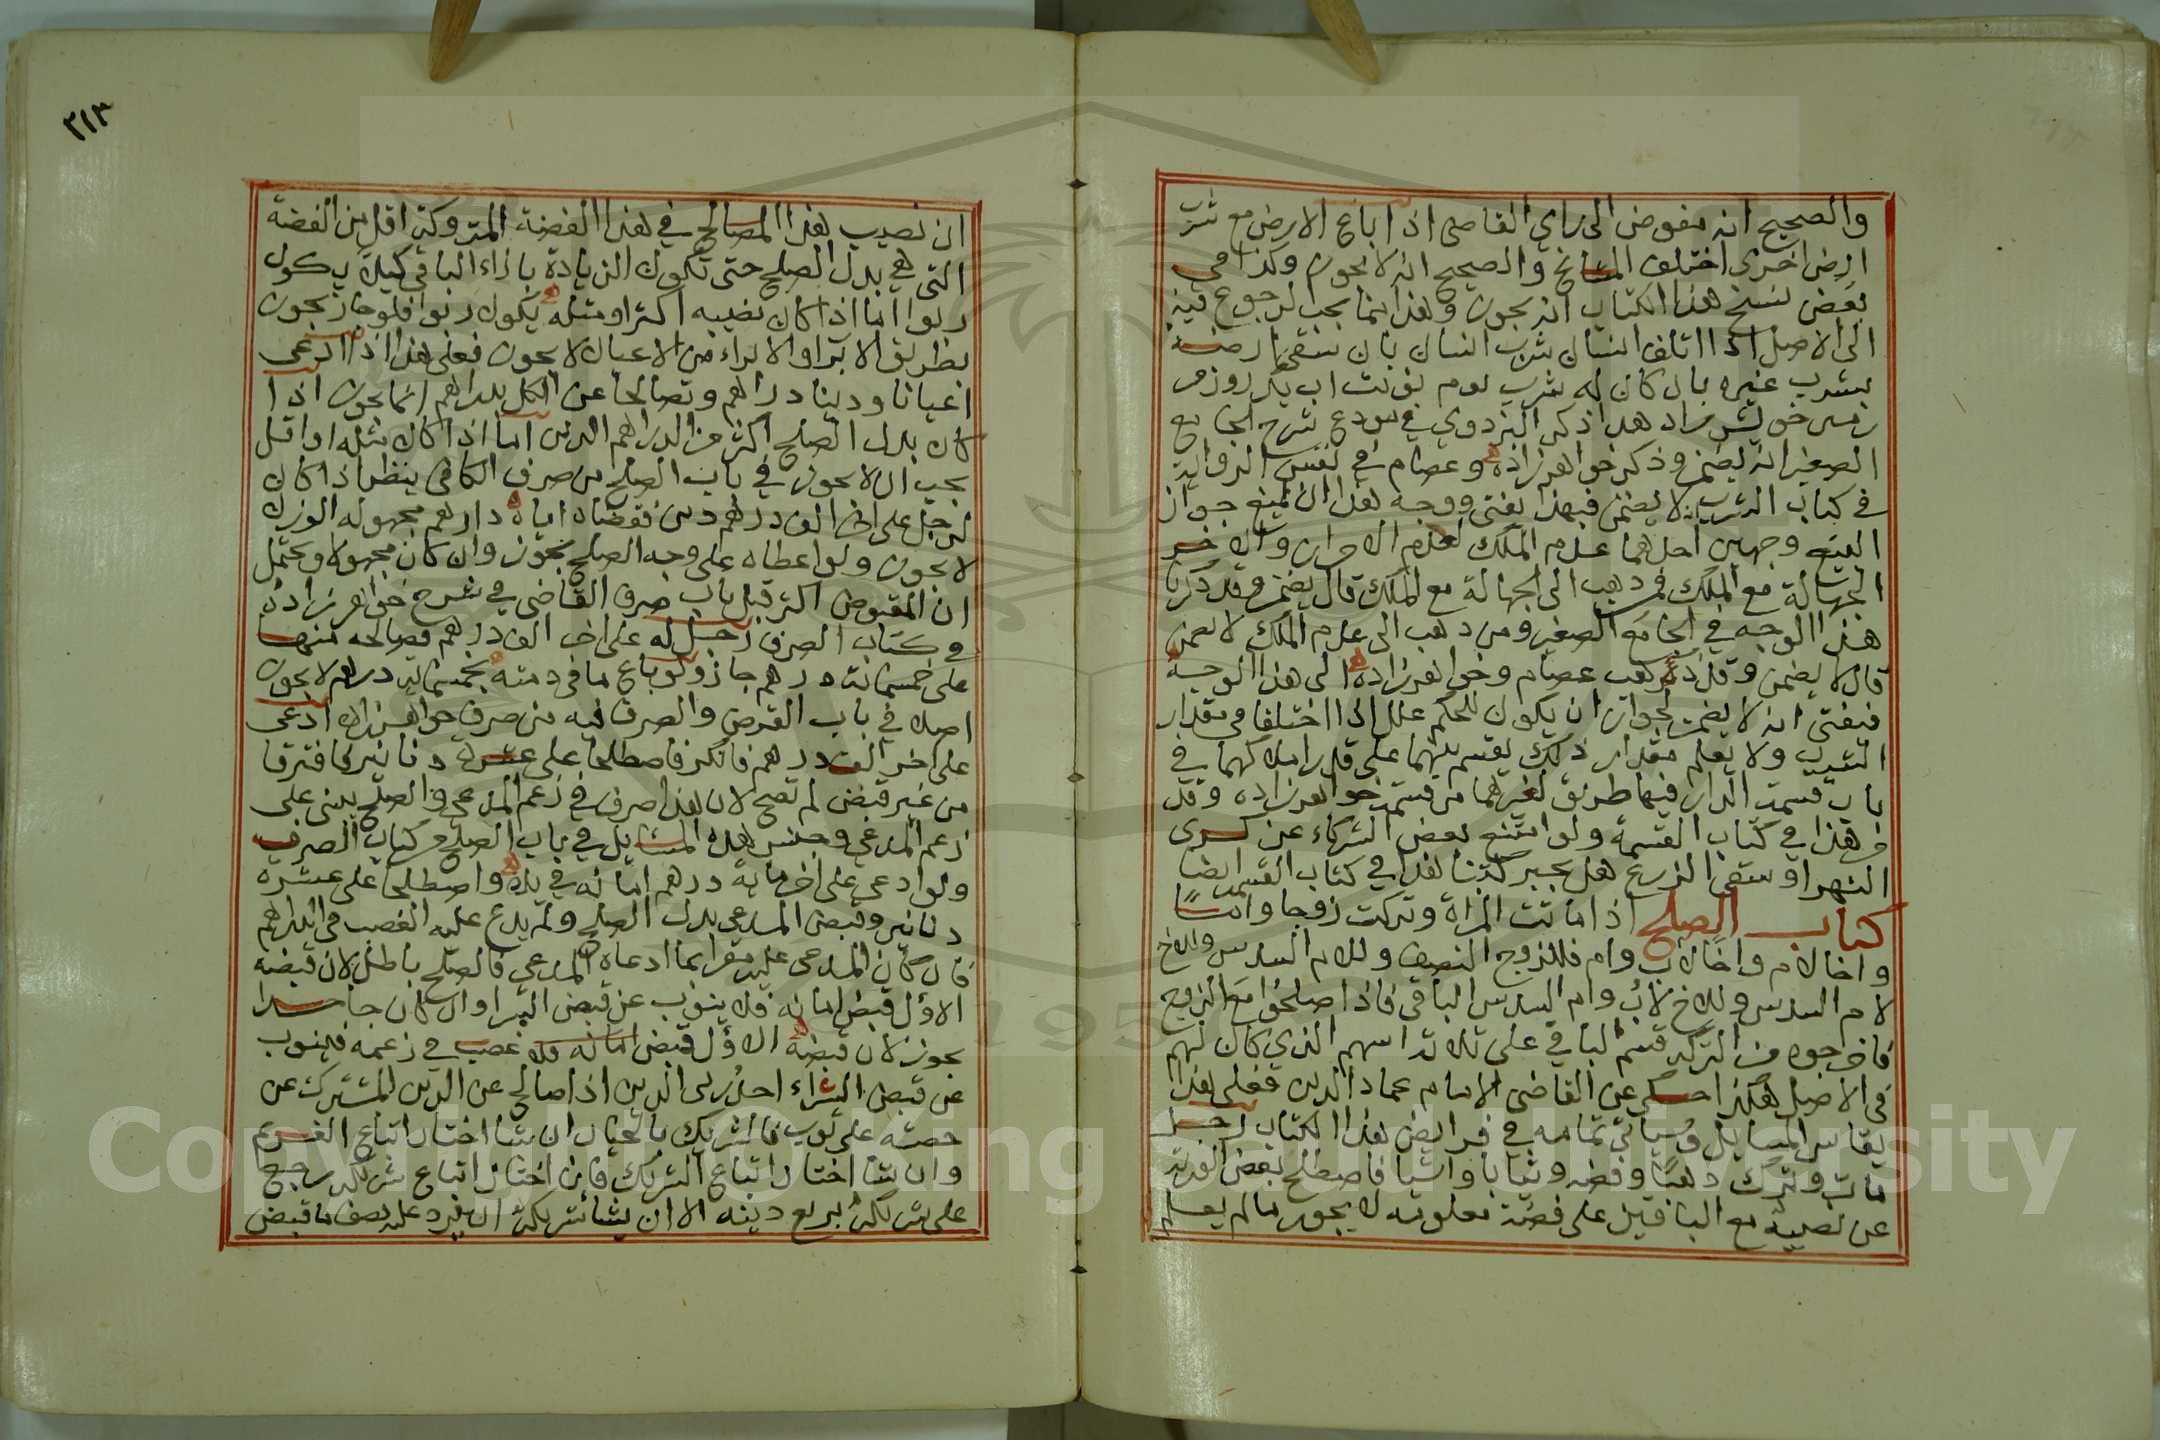 والصحيح انه مفوض الى راي القاضي اذا باع الارض مع شرب
ارض اخرى اختلف المشايخ والصحيح انه لا يجوز وكذا في
بعض نسخ هذا الكتاب انه يجوز وهذا مما يجب الرجوع فيه
الى الاصل اذا اتلف انسان شرب انسان بان سقى ارضه
بشرب غيره بان كان له شرب يوم
هذا ذكر البزدوي في شرح الجامع
الصغير انه يضمن وذكر خواهرزاده وعصام في نفس الرواية
في كتاب الشرب لا يضمن فبهذا يفتى ووجه هذا ان يمنع جواز
البيع وجهين احدهما عدم الملك لعدم الاحراز والاخر
الجهالة مع الملك فمن ذهب الى الجهالة مع الملك قال يضمن وقد ذكرنا
هذا الوجه في الجامع الصغير ومن ذهب الى عدم الملك لا يضمن
قال لا يضمن وقد ذهب عصام وخواهرزاده الى هذا الوجه
فيفتى انه لا يضمن لجواز ان يكون للحكم علل اذا اختلفا في مقدار
الشرب ولا يعلم مقدار ذلك يقسم بينهما على قدر املاكهما في
باب قسمة الدار فيها طريق لغيرهما من قسمة خواهرزاده وقد
مر هذا في كتاب القسمة ولو امتنع بعض الشركاء عن كرى
النهر او سقى الزرع هل يجبر كتبنا هذا في كتاب القسمة ايضا
كتاب الصلح اذا ماتت المراة وتركت زوجا
واخا لام واخا لاب وام فللزوج النصف وللام السدس وللاخ
لام السدس وللاخ لاب وام السدس الباقي فاذا اصلحوا مع الزوج
فاخرجوه من التركة قسم الباقي على ثلاثة اسهم الذي كان لهم
في الاصل هكذا حكى عن القاضي الامام عماد الدين فعلى هذا
يقاس المسايل وسياتي تمامه في فرايض هذا الكتاب رجل
مات وترك ذهبا وفضه وثيابا واشيا فاصطلح بعض الورثة
عن نصيبه مع الباقين على فضة معلومه لا يجوز ما لم يعلم
٣١٣
ان نصيب هذا المصالح في هذا الفضة المتروكة اقل من الفضة
التي هي بدل الصلح حتى تكون الزيادة بازاء الباقي كيلا يكون
ربوا اما اذا كان نصيبه اكثر او مثله يكون ربوا فلو جاز يجوز
بطريق الابرا والابراء من الاعيان لا يجوز فعلى هذا اذا ادعى
اعيانا ودينا دراهم وتصالحا عن الكل بدراهم انما يجوز اذا
كان بدل الصلح اكثر من الدراهم الدين اما اذا كان مثله او اقل
يجب ان لا يجوز في باب الصلح من صرف الكافي ينظر اذا كان
لرجل على اخر الف درهم دين فقضاه اياه دراهم مجهوله الوزن
لا يجوز ولو اعطاه على وجه الصلح يجوز وان كان مجهولا ويحتمل
ان المقبوض اكثر قبل باب صرف القاضي في شرح خواهرزاده
في كتاب الصرف رجل له على اخر الف درهم فصالحه منها
على خمسمائة درهم جاز ولو باع ما في ذمته بخمسمائة درهم لا يجوز
اصله في باب القرض والصرف فيه من صرف خواهرزاده ادعى
على اخر الف درهم فانكر فاصطلحا على عشرة دنانير فافترقا
من غير قبض لم تصح لان هذا صرف في زعم المدعي والصلح يبنى على
زعم المدعي وجنس هذه المسايل في باب الصلح من كتاب الصرف
ولو ادعى على اخر مائة درهم امانة في يده واصطلحا على عشرة
دنانير وقبض المدعي بدل الصلح ولم يدع عليه الغصب في الدراهم
فان كان المدعى عليه مقرا بما ادعاه المدعي فالصلح باطل لان قبضه
الاول قبض امانه فلا ينوب عن قبض الشرا وان كان جاحدا
يجوز لان قبضه الاول قبض غصب في زعمه فينوب
عن قبض الشراء احد ربي الدين اذا صالح عن الدين المشترك عن
حصته على ثوب فالشريك بالخيار ان شا اختار اتباع الغريم
وان شا اختار اتباع الشريك فان اختار اتباع شريكه رجع
على شريكه بربع دينه الا ان يشا شريكه ان يرد عليه نصف ما قبض